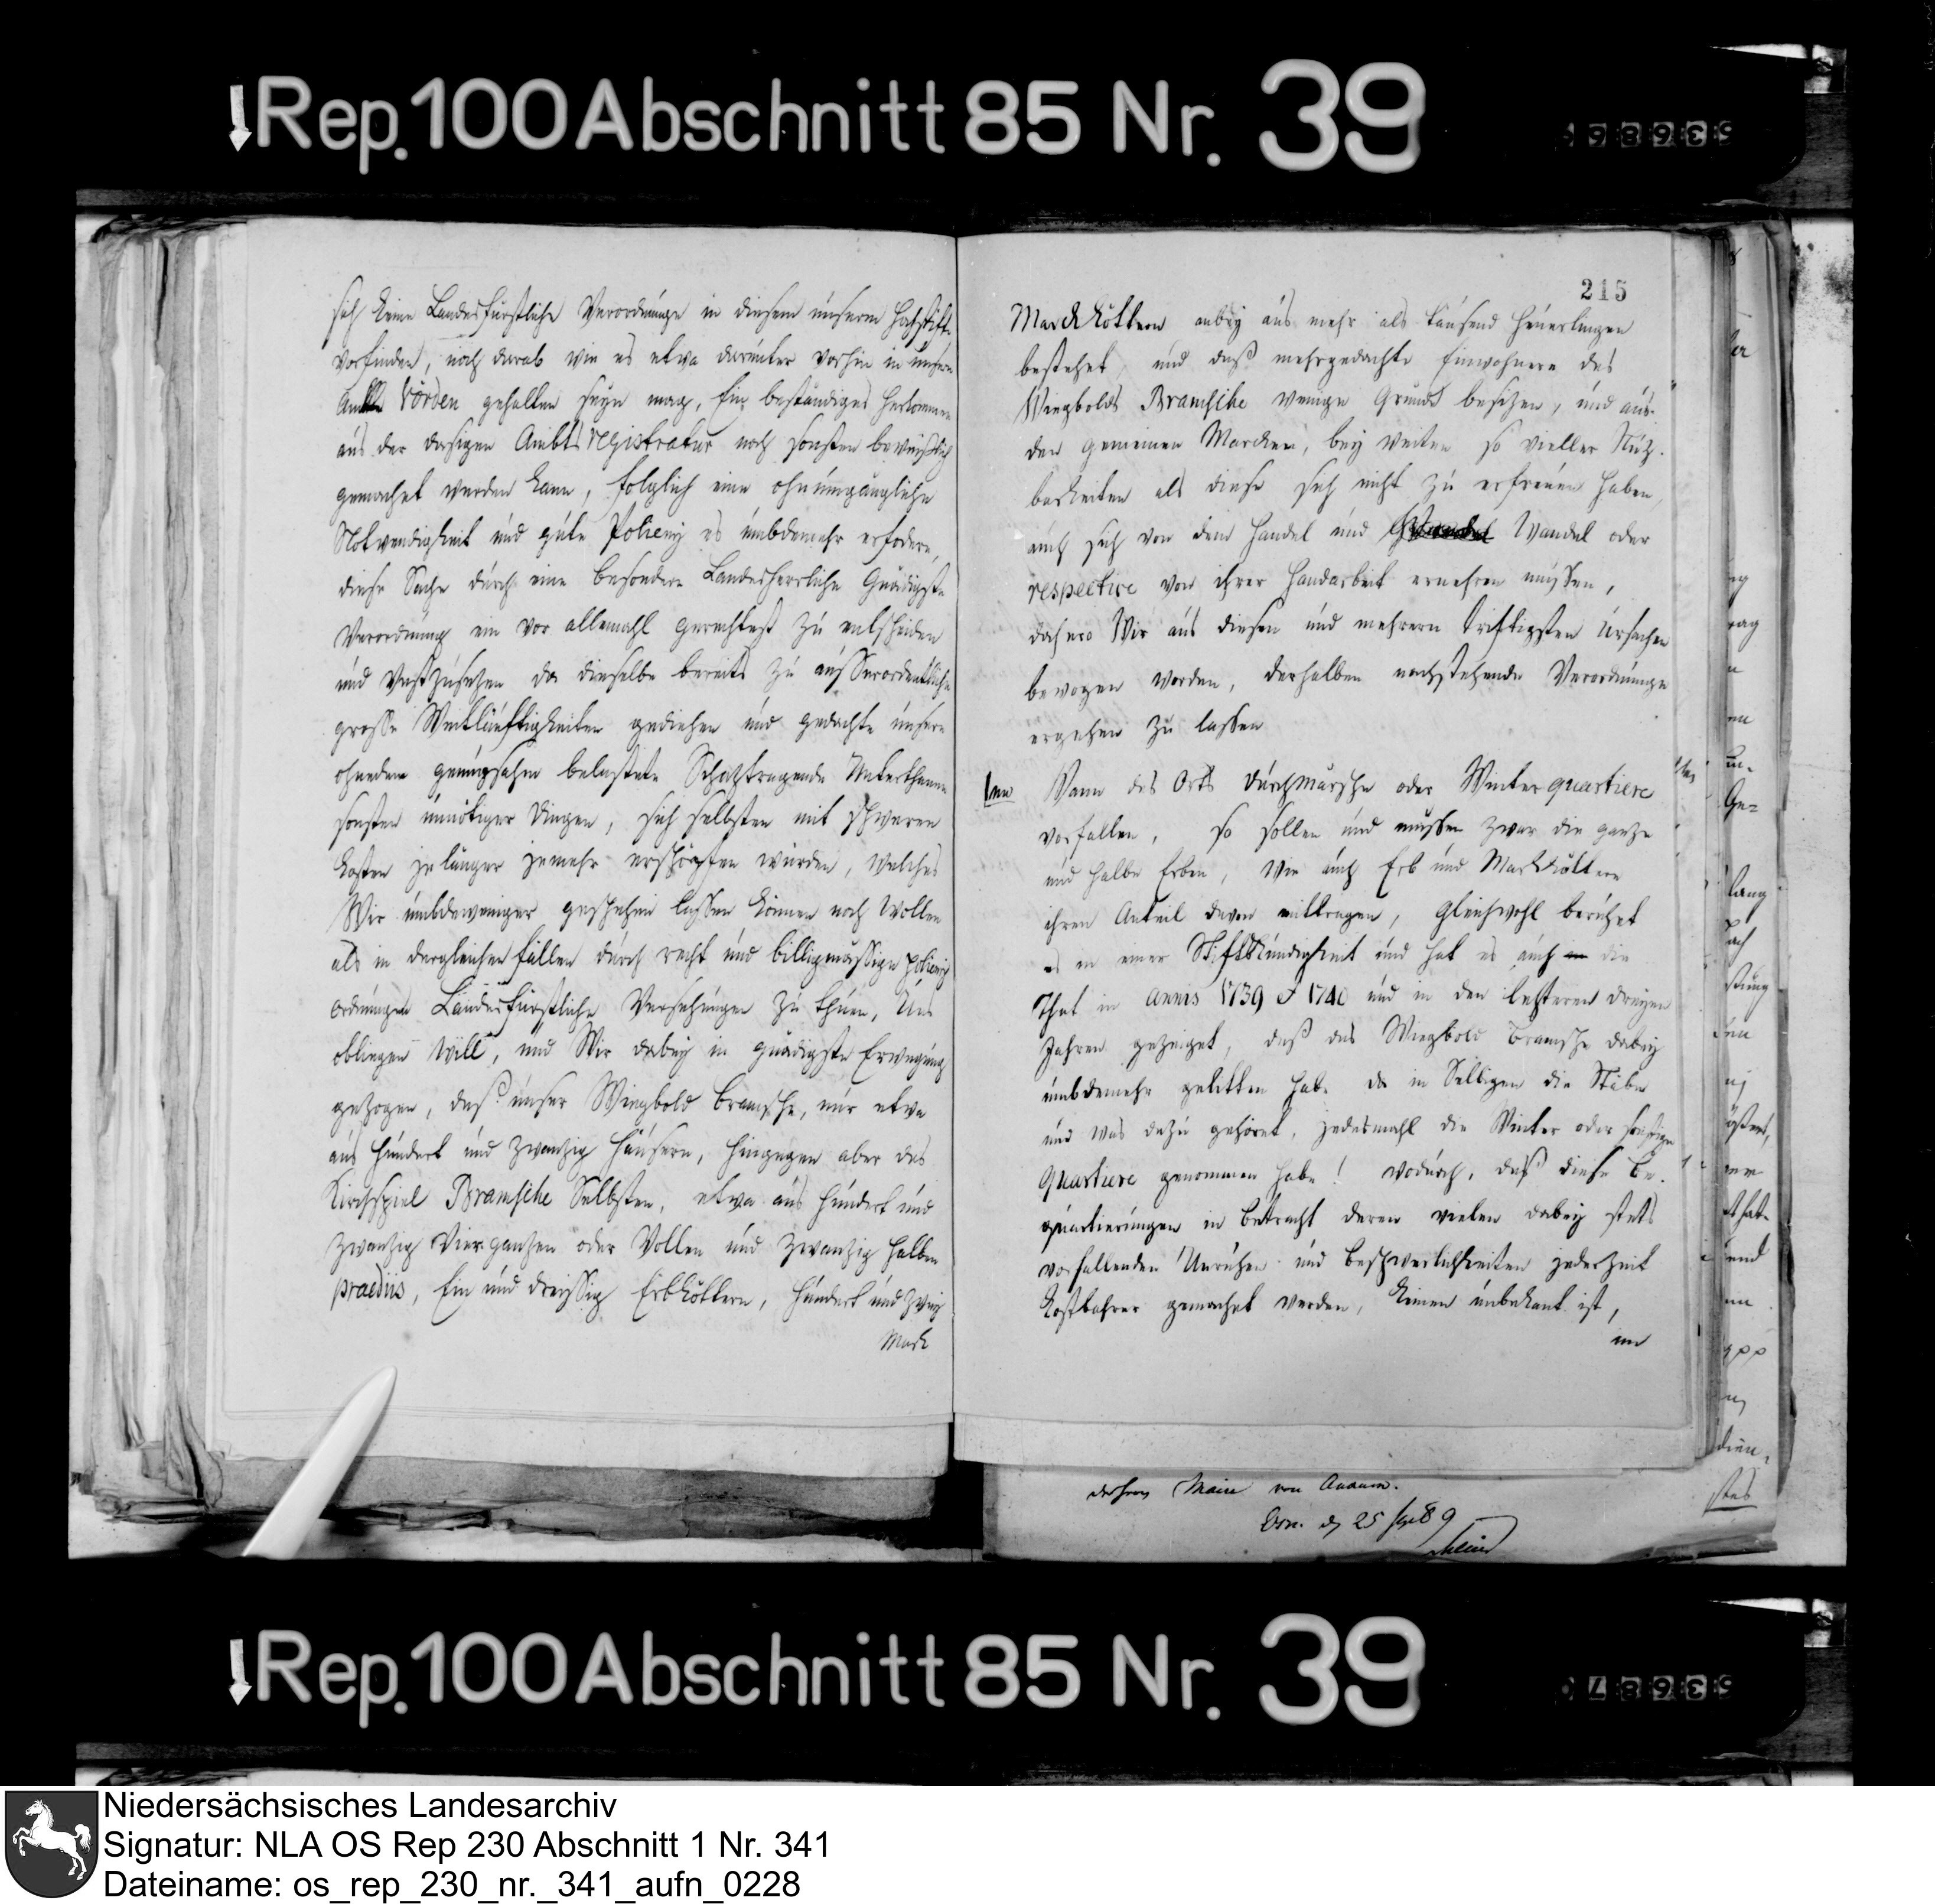 Rep. 100 Abschnitt 85 Nr. 39
sich keine Landesfürstliche Verordnunge in diesem unserm Hochstift
vorfinden, noch darab wie es etwa darunter vorhin in unserm
Vörden gehalten seyn mag, Ein beständiges Herkommen
aus der dasigen Ambts registratur noch sonsten beweißlich
gemachet werden kann, folglich eine ohnumgängliche
Notwendigkeit und gute Policey es umbdemehr erfodere,
diese Sache durch eine besondere Landesherrliche Gnädigste
Verordnung ein vor allemahl gerechtest zu entscheiden
und vestzusetzen da dieselbe bereits zu ausserordentliche
grosse Weitläuftigkeiten gediehen und gedachte unsere
ohnedem genugsahm belastete Schatztragende Unterthanen
sonsten unnötiger Dingen, sich selbsten mit schweren
Kosten je länger jemehr erschöpfen würden, welches
Wir umbdeweniger geschehen lassen können noch wollen
als in dergleichen fällen durch recht und billigmässige policey
ordnungen Landesfürstliche Versehungen zu thuen, Uns
obliegen will, und Wir dabey in gnädigste Erwegung
gezogen, daß unser Wiegbold Bramsche, nur etwa
aus hundert und zwanzig Häusern, hingegen aber das
Kirchspiel Bramsche Selbsten, etwa aus hundert und
zwanzig Vier ganzen oder Vollen und zwanzig halben
praediis, Ein und dreyssig Erbköttern, hundert und zwey
Mark
215
Marckköttern anbey aus mehr als tausend Heuerlingen
bestehet, und daß mehrgedachte Einwohnere des
Wiegbolds Bramsche wenige Grunde besitzen, und aus
den gemeinen Marcken, bey weiten so vieller Nutz-
barkeiten als diese sich nicht zu erfreuen haben,
auch sich von dem Handel und Wandel oder
respective von ihrer Handarbeit ernehren müssen,
dahero Wir aus diesen und mehrern triftigsten Ursachen
bewogen worden, derhalben nachstehende Verordnunge
ergehen zu lassen
1mo Wann des Orts durchmärsche oder Winter quartiere
vorfallen, so sollen und müssen zwar die ganze
und halbe Erben, wie auch Erb und Markköttere
ihren Anteil davon mittragen, Gleichwohl beruhet
es in einer Stiftskündigkeit und hat es auch die
That in annis 1739 & 1740 und in den letsteren dreyen
Jahren gezeiget, daß das Wiegbold Bramsche dabey
umbdemehr gelitten habe da in Selbigen die Stäbe
und was dazu gehöret, jedesmahl die Winter oder sonstige
Quartiere genommen habe! wodurch, daß diese Be-
quartierungen in betracht deren vielen dabey stets
vorfallenden Unruhen und beschwerlichkeiten jederzeit
Kostbahrer gemachet werden, keinen unbekant ist,
Maire von
25
Rep. 100 Abschnitt 85 Nr. 39
Niedersächsisches Landesarchiv
Signatur: NLA OS Rep 230 Abschnitt 1 Nr. 341
Dateiname: os_rep_230_nr._341_aufn_0228